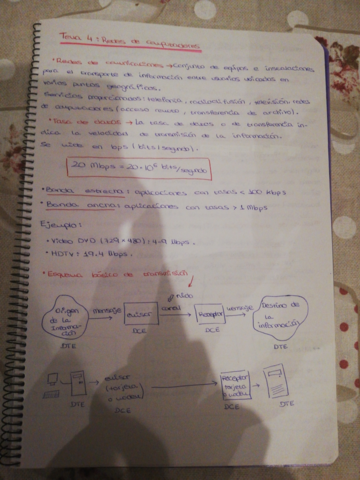 Tema 4: Redes de computadores
• Redes de comunicaciones → conjunto de equipos e interconexiones
para el transporte de información entre usuarios ubicados en
varios puntos geográficos.
Servicios proporcionados: telefonía, radiodifusión, televisión, redes
de computadores (acceso remoto, transferencia de archivos).
• Tasa de datos → la tasa de datos o de transferencia in-
dica la velocidad de transmisión de la información.
Se mide en bps (bits/segundo).
20 Mbps = 20·10⁶ bits/segundo
• Banda estrecha: aplicaciones con tasas < 100 kbps
• Banda ancha: aplicaciones con tasas > 1 Mbps
Ejemplo:
• Video DVD (720 x 480): 4-9 Mbps.
• HDTV: 19.4 Mbps.
• Esquema básico de transmisión
ruido
Origen de la información
mensaje
emisor
canal
Receptor
mensaje
Destino de la información
DTE
DCE
DCE
DTE
emisor (tarjeta o modem)
Receptor tarjeta o modem
DTE
DCE
DCE
DTE